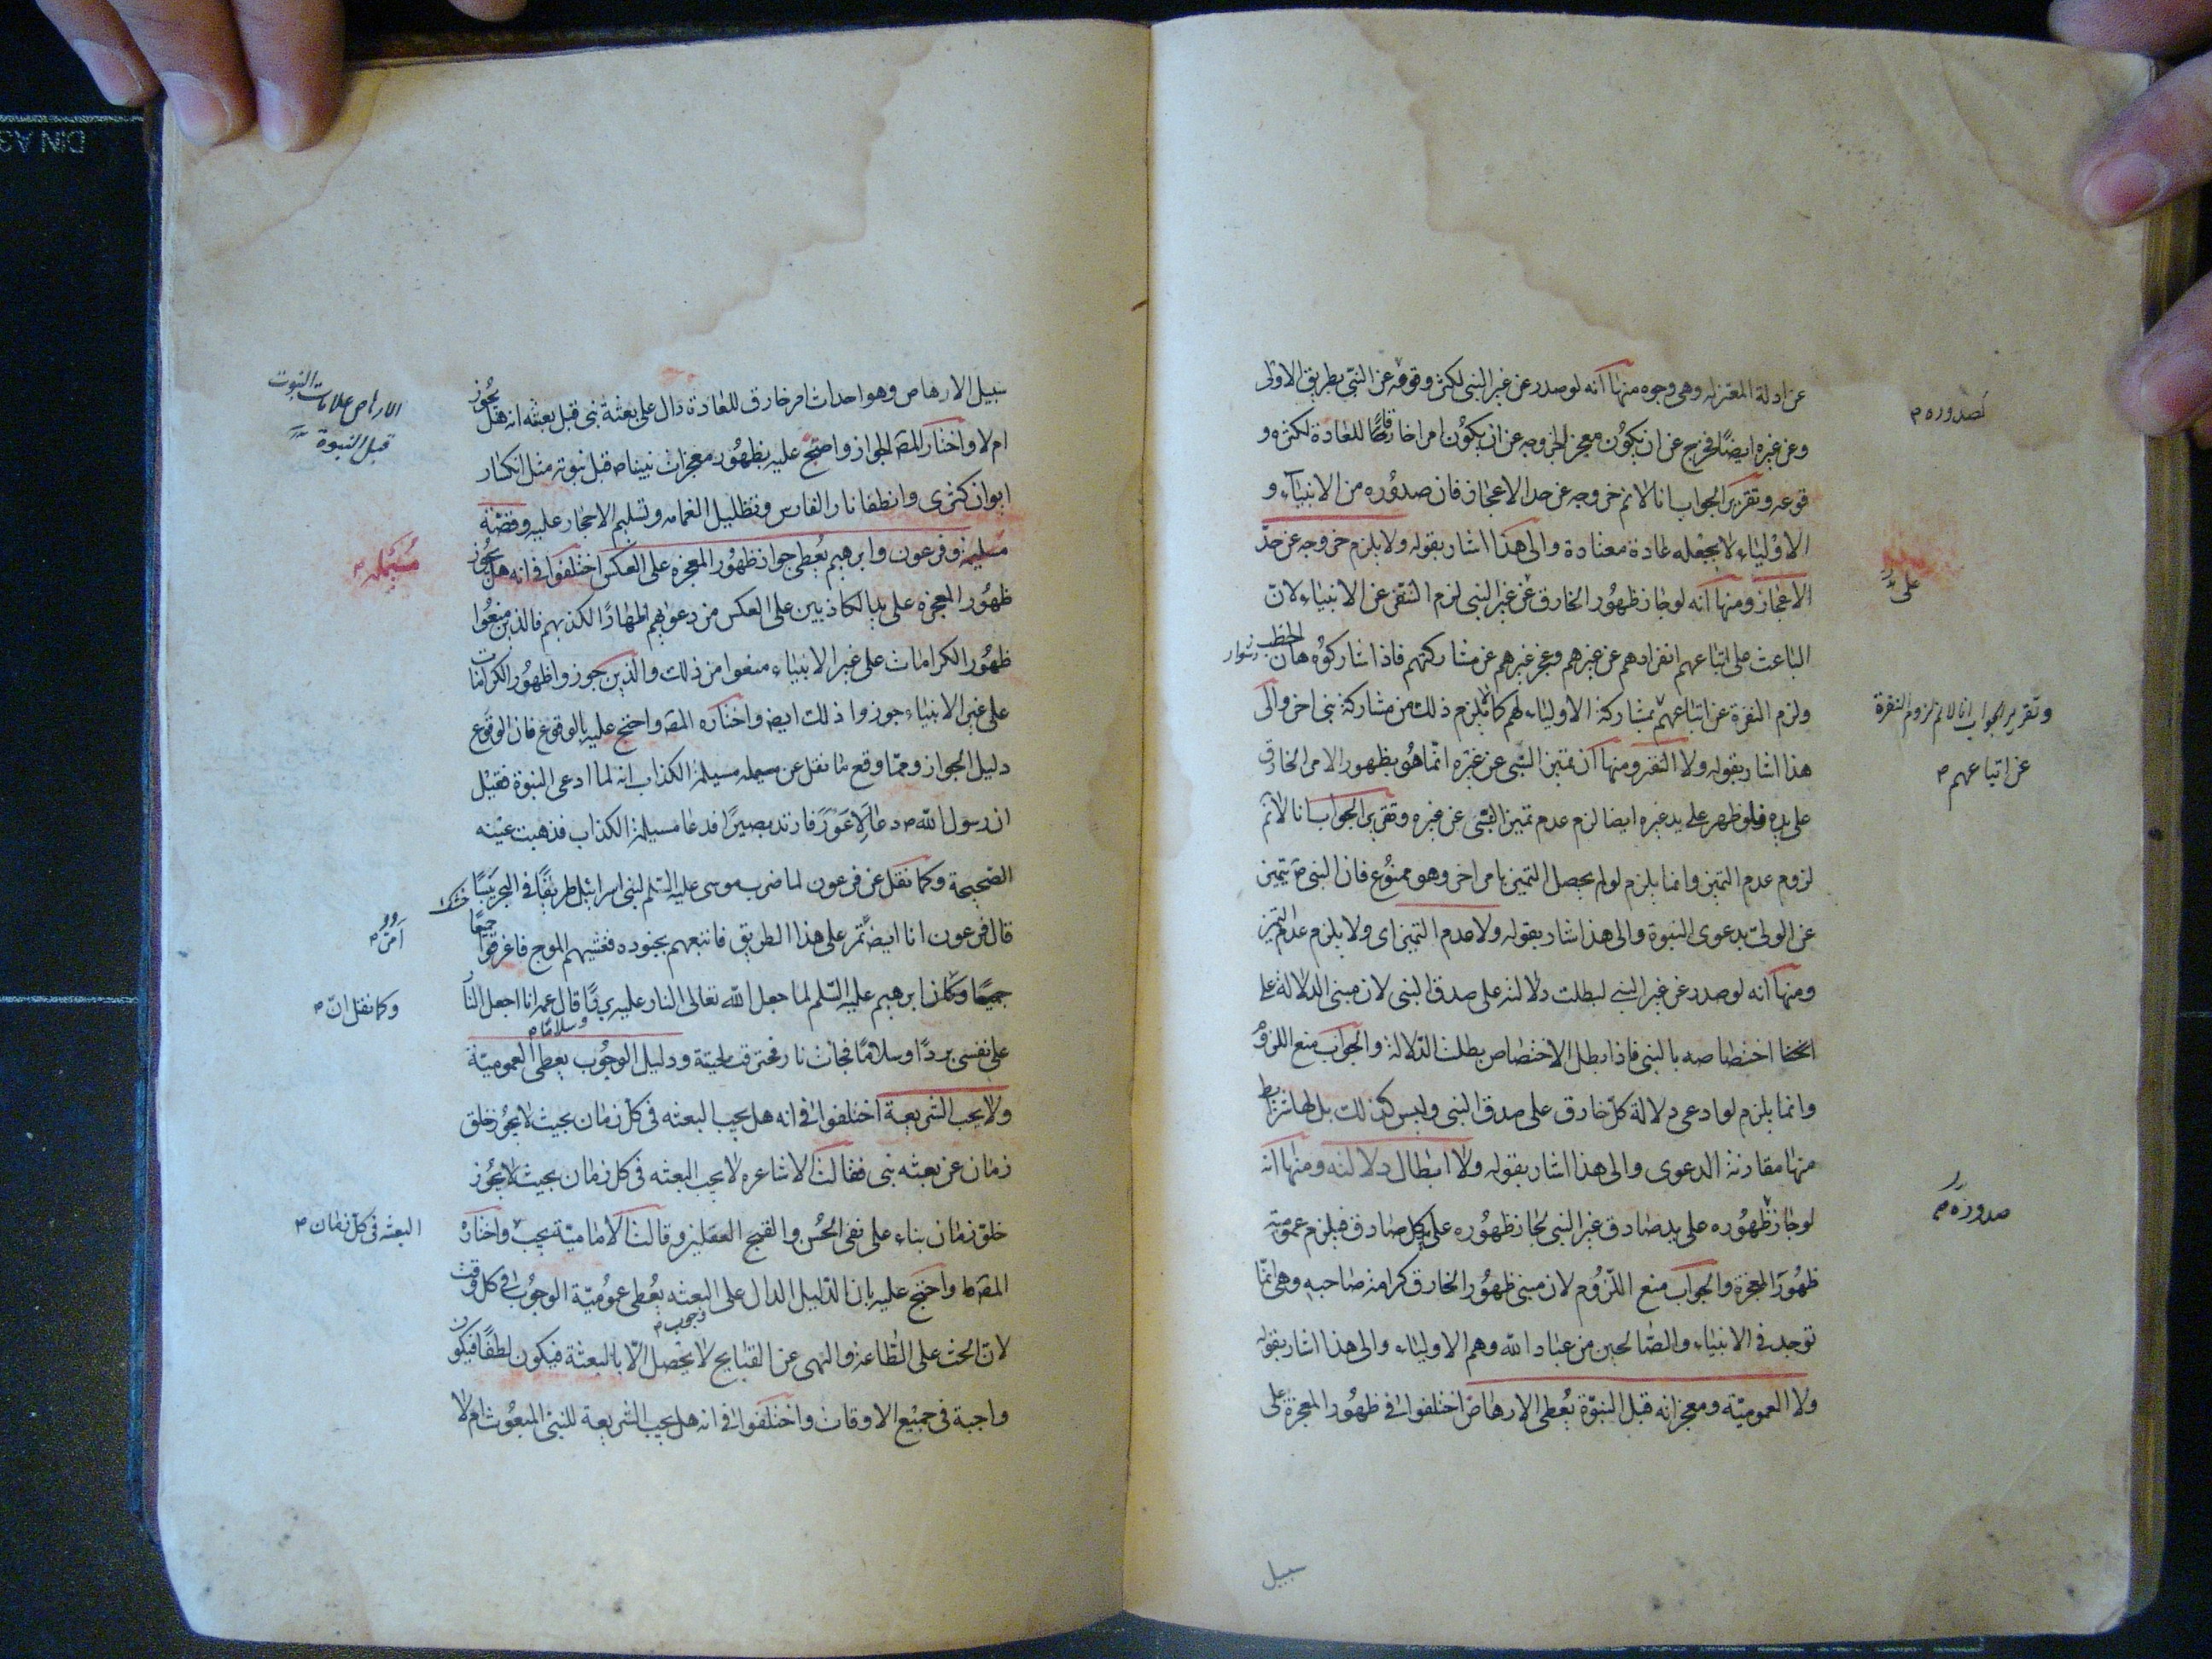 عن ادلة المعتزله وهى وجوه منها انه لو صدر عن غير النبى لكثر وقوعه عن النبى بطريق الاولى
وعن غيره ايضًا فخرج عن ان يكون معجز الخروجه عن ان يكون امرا خارقًا للعادة لكثرة و
قوعه وتقرير الجواب انا لانم خروجه عن حد الاعجاز فان صدوره من الانبياء و
الاولياء لا يجعله عادة معتادة والى هذا اشار بقوله ولا يلزم خروجه عن حدّ
الاعجاز ومنها انه لو جاز ظهور الخارق عن غير النبى لزم التنفر عن الانبياء لان
الباعث على اتباعهم انفرادهم عن غيرهم وعجز غيرهم عن مشاركتهم فاذا شاركوه هان الخطب
ولزم النفرة عن اتباعهم بمشاركة الاولياء لهم كما يلزم ذلك من مشاركة نبى اخر والى
هذا اشار بقوله ولا النفر ومنها ان تميز النبى عن غيره انما هو بظهور الامر الخارق
على يده فلو ظهر على يد غيره ايضا لزم عدم تميز النبى عن غيره وتقرير الجواب انا لانم
لزوم عدم التميز وانما يلزم لو لم يحصل التميز بامر اخر وهو ممنوع فان النبى ص يتميز
عن الولى بدعوى النبوة والى هذا اشار بقوله ولا عدم التميز اى ولا يلزم عدم التميز
ومنها انه لو صدر عن غير النبى لبطلت دلالته على صدق النبى لان مبنى الدلالة على
اختصاصه بالنبى فاذا بطل الاختصاص بطلت الدلالة والجواب منع اللزوم
وانما يلزم لو ادعى دلالة كل خارق على صدق النبى وليس كذلك بل لها شرايط
منها مقارنة الدعوى والى هذا اشار بقوله ولا ابطال دلالته ومنها انه
لو جاز ظهوره على يد صادق غير النبى لجاز ظهوره على كل صادق فيلزم عمومية
ظهور المعجزة والجواب منع اللزوم لان مبنى ظهور الخارق كرامة صاحبه وهى انما
توجد فى الانبياء والصالحين من عباد الله وهم الاولياء والى هذا اشار بقوله
ولا العموميّة ومعجزاته قبل النبوّة يعطى الارهاص اختلفوا فى ظهور المعجزة على
لصدوره م
على يد
وتقرير الجواب انا لانم لزوم النفرة
عن اتباعهم م
صدوره م
سبيل
سبيل الارهاص وهو احداث امر خارق للعادة دال على بعثة نبى قبل بعثته انه هل يجوز
ام لا واختار المص الجواز واحتج عليه بظهور معجزات نبينا ص قبل نبوته مثل انكسار
ايوان كسرى وانطفا نار الفارس وتظليل الغمامه وتسليم الاحجار عليه وقصّة
مسيلمة وفرعون وابرهيم يعطى جواز ظهور المعجزة على العكس اختلفوا فى انه هل يجوز
ظهور المعجزة على يد الكاذبين على العكس من دعواهم اظهارًا لكذبهم فالذين منعوا
ظهور الكرامات على غير الانبياء منعوا من ذلك والذين جوزوا ظهور الكرامات
على غير الانبياء جوزوا ذلك ايض واختاره المص واحتج عليه بالوقوع فان الوقوع
دليل الجواز ومما وقع ما نقل عن مسيلمة الكذاب انه لما ادعى النبوة فقيل
ان رسول الله ص دعا لاعور فارتد بصيرًا فدعا مسيلمة الكذاب فذهبت عينه
الصحيحة وكما نقل عن فرعون لما ضرب موسى عليه السّلم لبنى اسرائيل طريقًا فى البحر يبسًا
قال فرعون انا ايضًا نمر على هذا الطريق فاتبعهم بجنوده فغشيهم الموج فاغرقوا جميعًا
ابرهيم عليه السّلم لما جعل الله تعالى النار عليه بردًا قال عمه انا اجعل النار
على نفسى بردًا وسلامًا فجائت نار فحترقت لحيته ودليل الوجوب يعطى العموميّة
ولا يجب الشريعة اختلفوا فى انه هل يجب البعثه فى كل زمان بحيث لا يجوز خلو
زمان عن بعثه نبى فقالت الاشاعره لا يجب البعثه فى كل زمان بحيث لا يجوز
خلو زمان بناء على نفى الحسن والقبح العقليين وقالت الاماميّة يجب واختاره
المص واحتج عليه بان الدليل الدال على البعثه يعطى عموميّة الوجوب فى كل وقت
لان الحث على الطاعة والنهى عن القبايح لا يحصل الا بالبعثة فيكون لطفًا فيكون
واجبة فى جميع الاوقات واختلفوا فى انه هل يجب الشريعة للنبى المبعوث ام لا
الارهاص علامات النبوت
قبل النبوة
مسيلمه م
امر م
وكما نقل ان م
وسلامًا م
وجوب م
البعثه فى كل زمان م